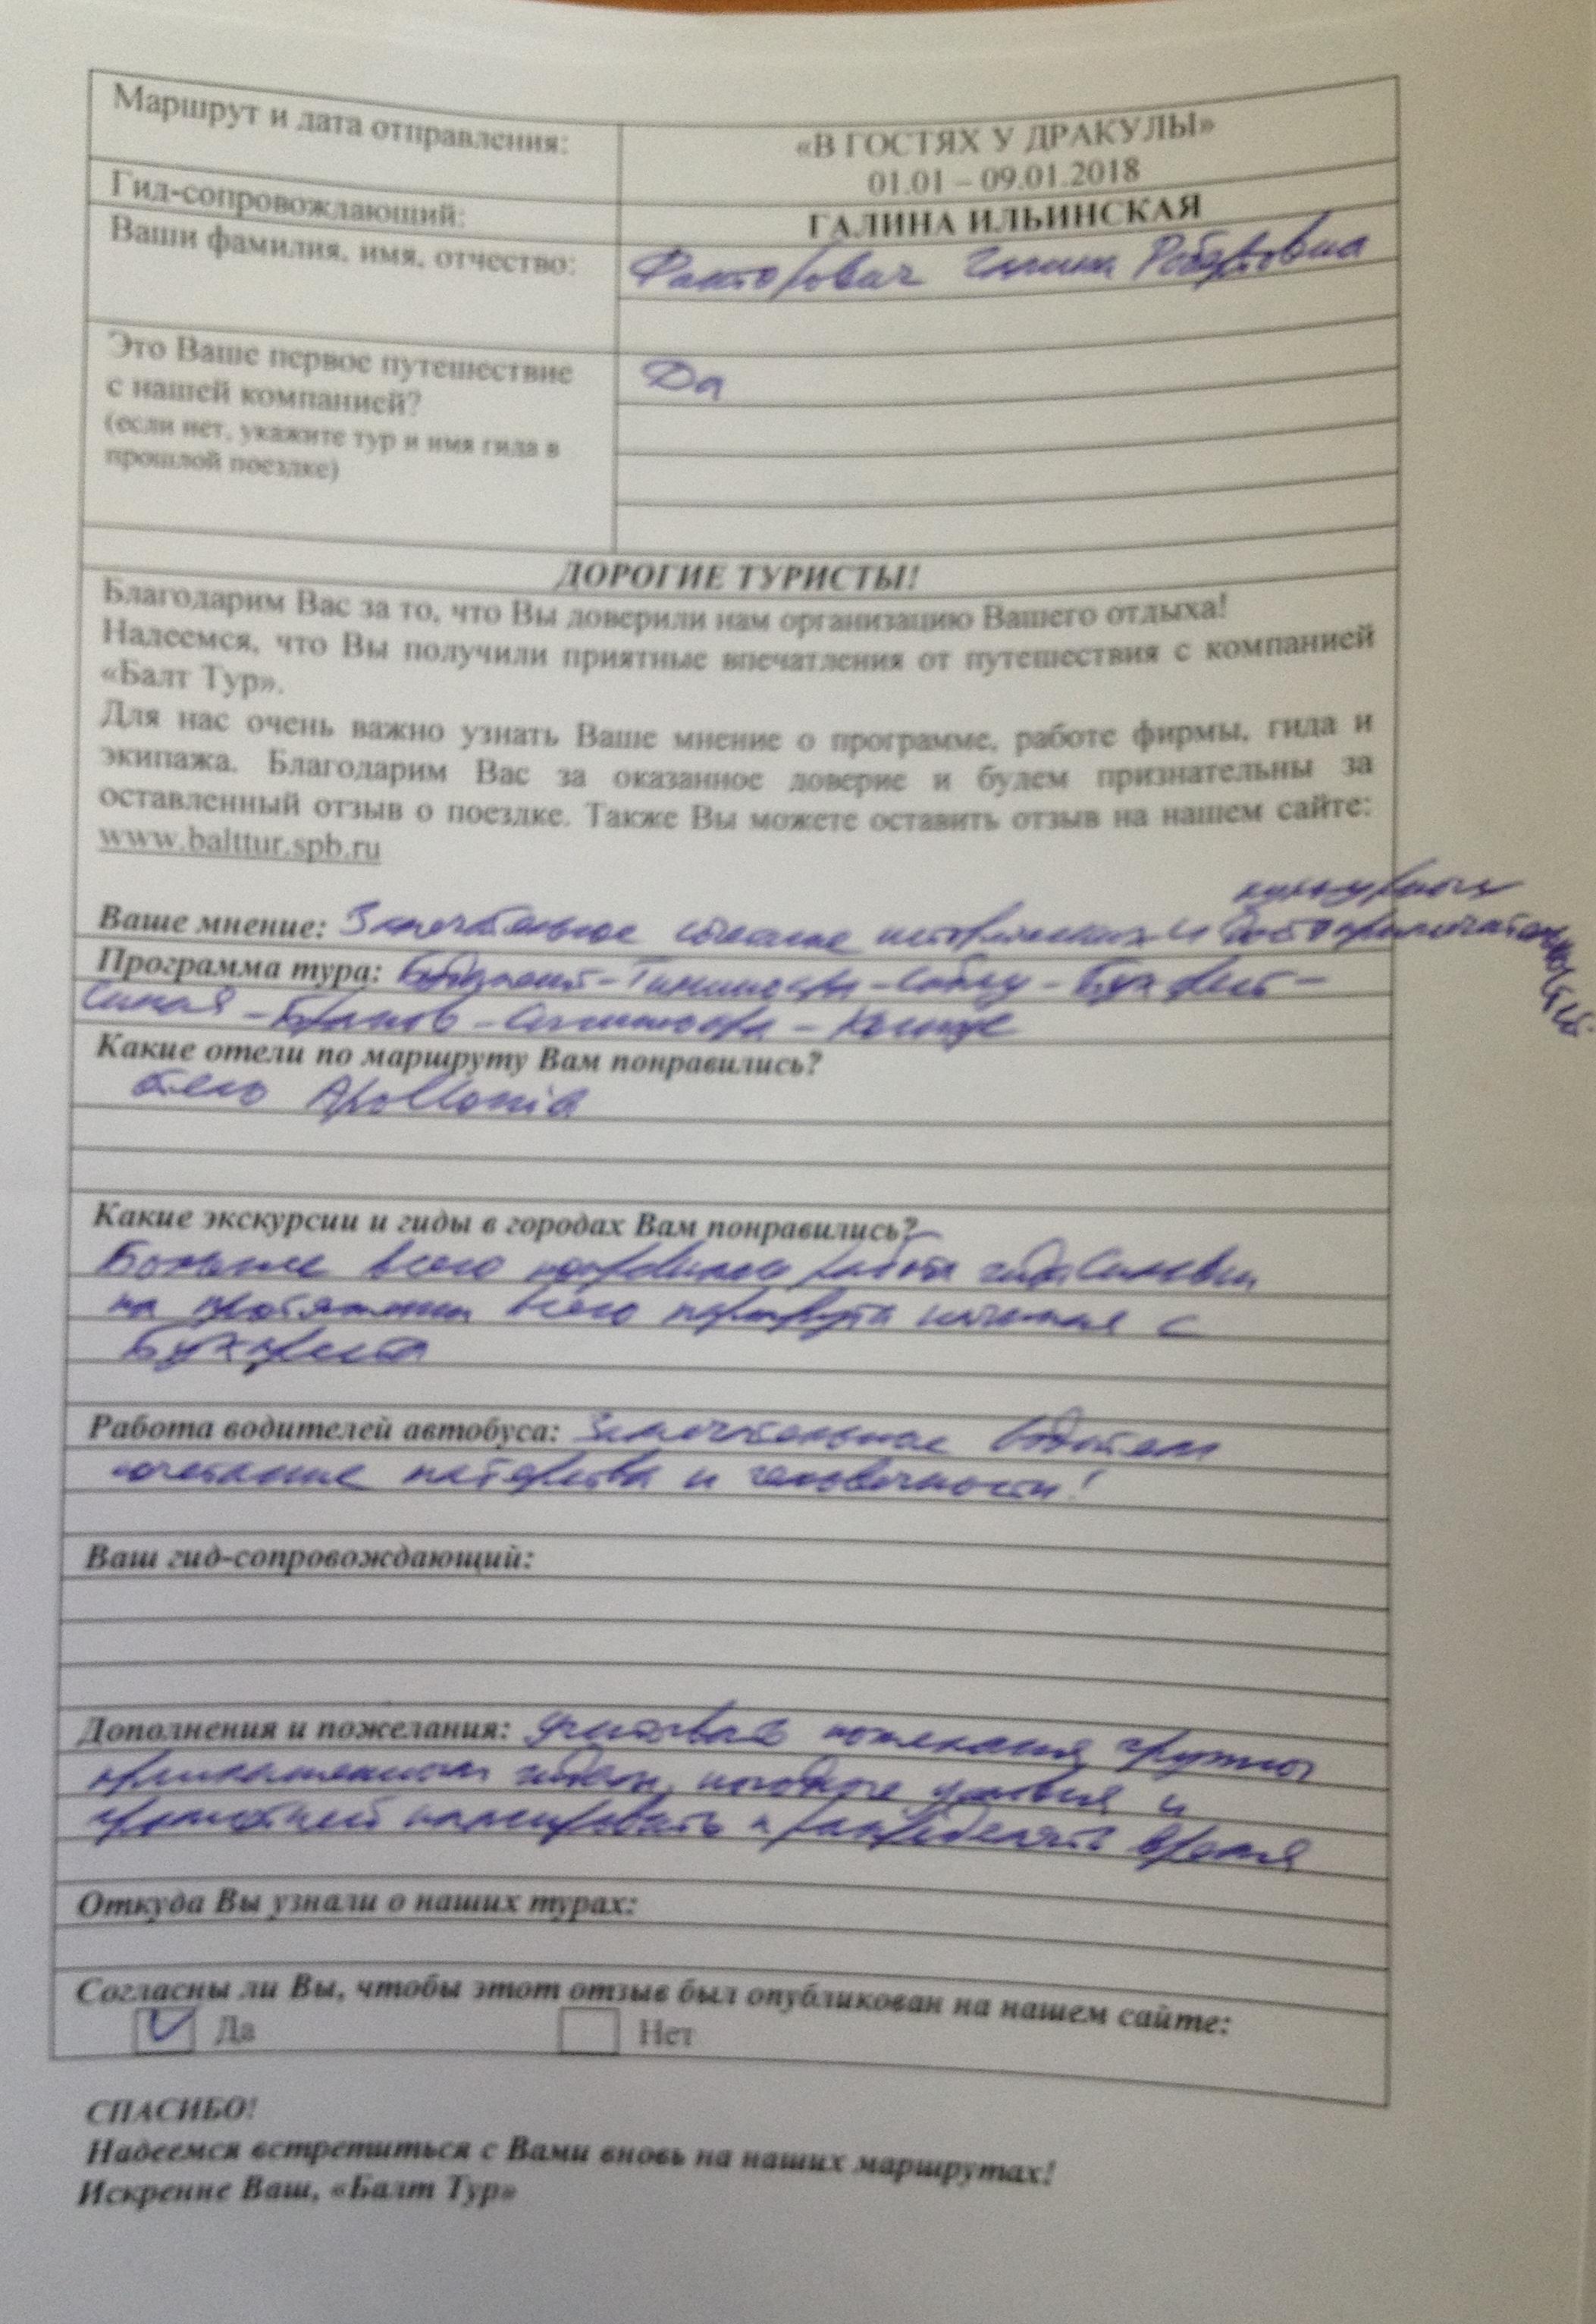 Маршрут и дата отправления:
«В ГОСТЯХ У ДРАКУЛЫ»
01.01 – 09.01.2018
Гид-сопровождающий:
ГАЛИНА ИЛЬИНСКАЯ
Ваши фамилия, имя, отчество:
Галина Робертовна
Это Ваше первое путешествие
с нашей компанией?
(если нет, укажите тур и имя гида в
прошлой поездке)
Да
ДОРОГИЕ ТУРИСТЫ!
Благодарим Вас за то, что Вы доверили нам организацию Вашего отдыха!
Надеемся, что Вы получили приятные впечатления от путешествия с компанией
«Балт Тур».
Для нас очень важно узнать Ваше мнение о программе, работе фирмы, гида и
экипажа. Благодарим Вас за оказанное доверие и будем признательны за
оставленный отзыв о поездке. Также Вы можете оставить отзыв на нашем сайте:
www.balttur.spb.ru
культурных
Ваше мнение: Замечательное сочетание исторических и достопримечательностей.
Программа тура: Будапешт – Тимишоара – Сибиу – Бухарест –
Синая – Бранов – Сигишоара –
Какие отели по маршруту Вам понравились?
отель Apollonia
Какие экскурсии и гиды в городах Вам понравились?
Больше всего понравилась работа гида
на протяжении всего маршрута начиная с
Бухареста
Работа водителей автобуса: Замечательные водители
сочетание мастерства и человечности!
Ваш гид-сопровождающий:
Дополнения и пожелания: учитывать пожелания группы
гидом, погодные условия и
планировать и распределять время
Откуда Вы узнали о наших турах:
Согласны ли Вы, чтобы этот отзыв был опубликован на нашем сайте:
Да Нет
СПАСИБО!
Надеемся встретиться с Вами вновь на наших маршрутах!
Искренне Ваш, «Балт Тур»